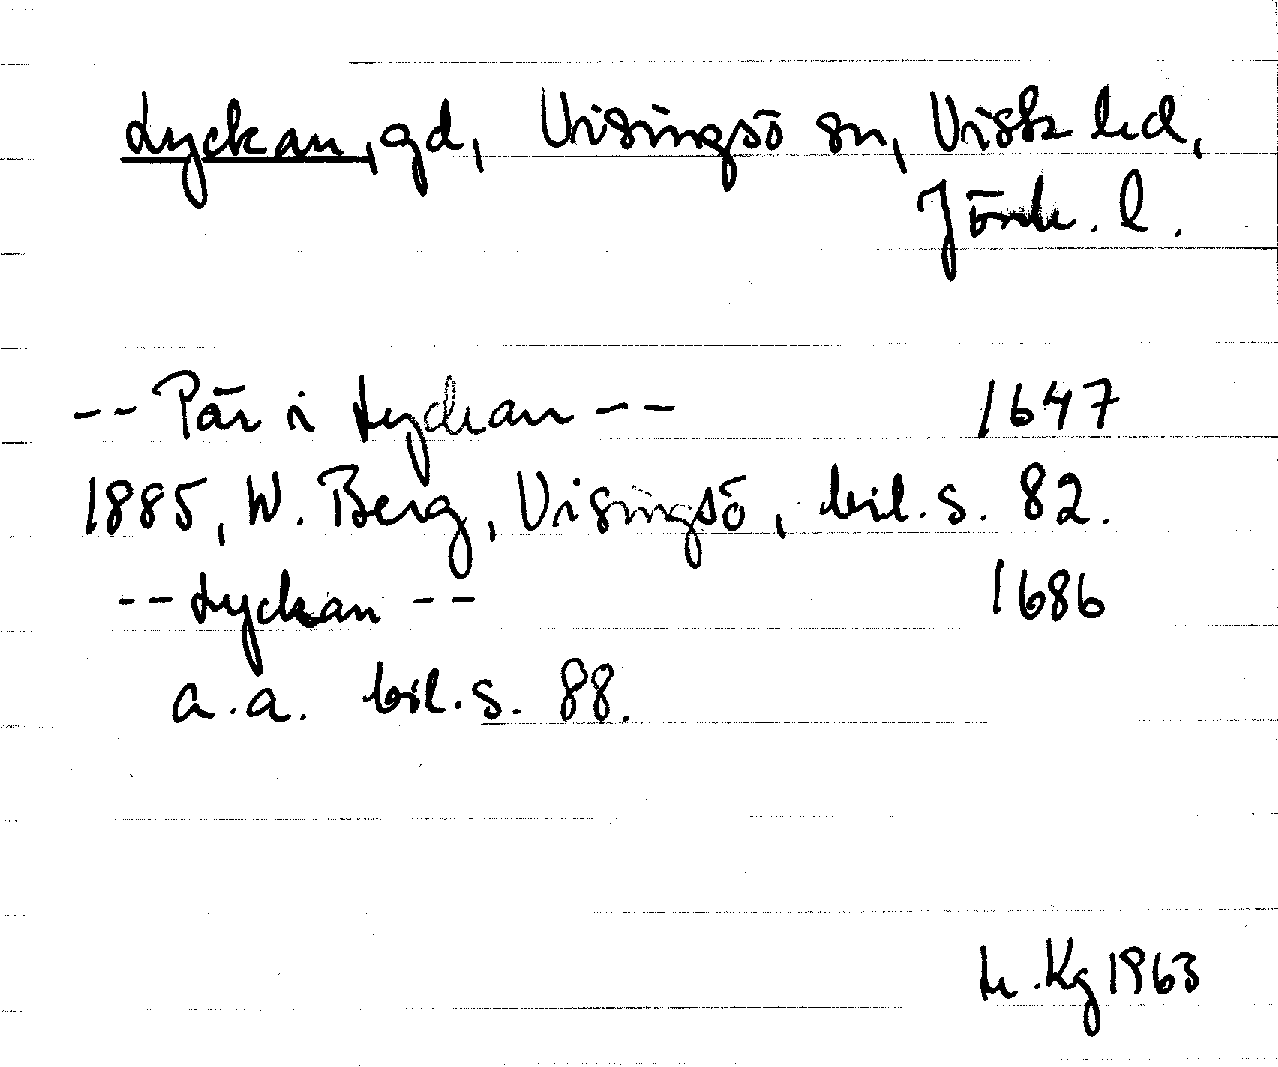 Lyckan, gd, Visingsö sn, Vista hd,
Jönk. l.
-- Pär i Lyckan -- 1647
1885, W. Berg, Visingsö, bil. s. 82.
-- Lyckan -- 1686
a.a. bil. s. 88.
Kg 1963